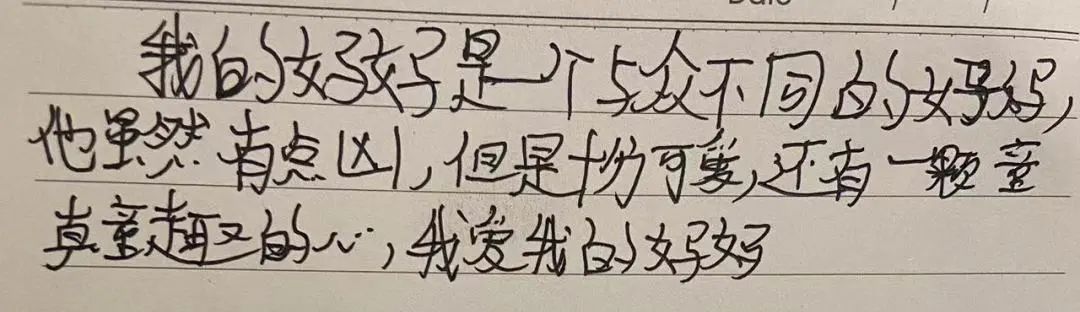 我的妈妈是一个与众不同的妈妈,
他虽然有点凶,但是十分可爱,还有一颗童
真童趣的心,我爱我的妈妈